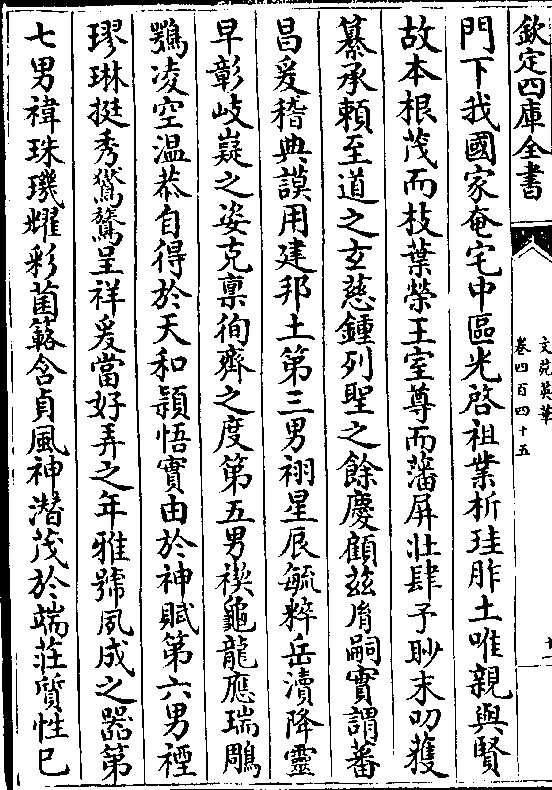 欽定四庫全書
文苑英華
卷四百四十五
十一
門下我國家奄宅中區光啓祖業析珪胙土唯親與賢
故本根茂而枝葉榮王室尊而藩屏壮肆予眇末叨獲
纂承賴至道之玄慈鍾列聖之餘慶顧兹胤嗣實謂蕃
昌爰稽典謨用建邦土第三男祤星辰毓粹岳瀆降靈
早彰岐嶷之姿克稟徇齊之度第五男禊龜龍應瑞鵰
鶚凌空温恭自得於天和穎悟實由於神賦第六男禋
璆琳挺秀鸑鷟呈祥爰當好弄之年雅號夙成之器第
七男禕珠璣耀彩菌簵含貞風神潜茂於端莊質性已